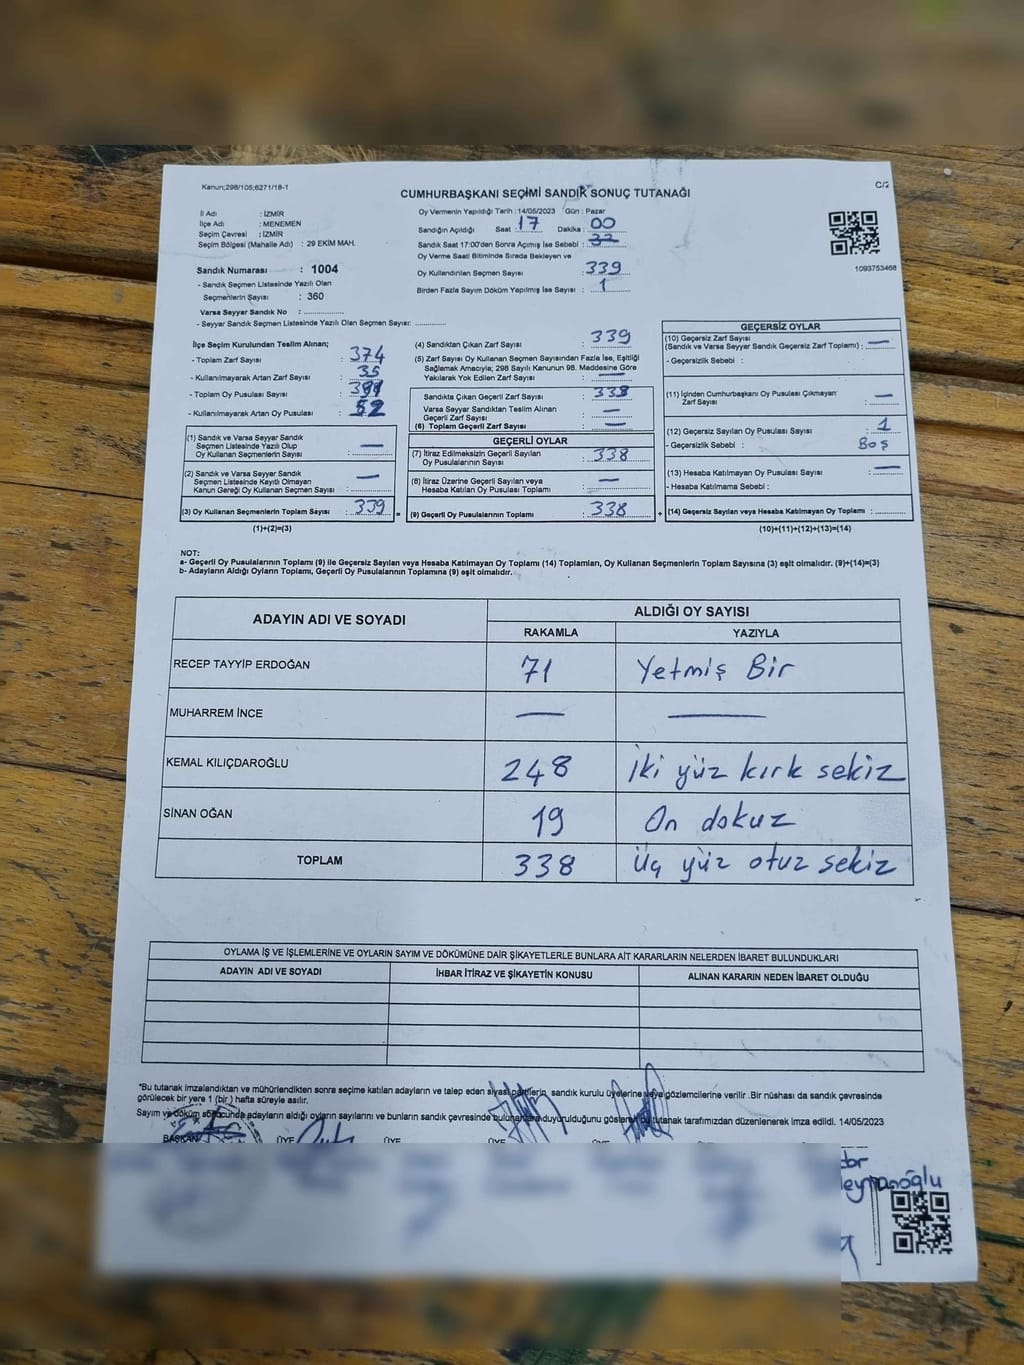 Kanun;298/105;6271/18-1
C/2
CUMHURBAŞKANI SEÇİMİ SANDIK SONUÇ TUTANAĞI
İl Adı : İZMİR
İlçe Adı : MENEMEN
Seçim Çevresi : İZMİR
Seçim Bölgesi (Mahalle Adı) : 29 EKİM MAH.
Sandık Numarası : 1004
- Sandık Seçmen Listesinde Yazılı Olan
Seçmenlerin Sayısı : 360
Varsa Seyyar Sandık No : ..............
- Seyyar Sandık Seçmen Listesinde Yazılı Olan Seçmen Sayısı: ............
Oy Vermenin Yapıldığı Tarih : 14/05/2023 Gün : Pazar
Sandığın Açıldığı Saat : 17 Dakika : 00
Sandık Saat 17:00'den Sonra Açılmış İse Sebebi :
Oy Verme Saati Bitiminde Sırada Bekleyen ve
Oy Kullandırılan Seçmen Sayısı : 339
Birden Fazla Sayım Döküm Yapılmış İse Sayısı : 1
1093753468
İlçe Seçim Kurulundan Teslim Alınan;
- Toplam Zarf Sayısı : 374
- Kullanılmayarak Artan Zarf Sayısı : 35
- Toplam Oy Pusulası Sayısı :
- Kullanılmayarak Artan Oy Pusulası : 52
(1) Sandık ve Varsa Seyyar Sandık
Seçmen Listesinde Yazılı Olup
Oy Kullanan Seçmenlerin Sayısı : —
(2) Sandık ve Varsa Seyyar Sandık
Seçmen Listesinde Kayıtlı Olmayan
Kanun Gereği Oy Kullanan Seçmen Sayısı : —
(3) Oy Kullanan Seçmenlerin Toplam Sayısı : 339 =
(1)+(2)=(3)
(4) Sandıktan Çıkan Zarf Sayısı : 339
(5) Zarf Sayısı Oy Kullanan Seçmen Sayısından Fazla İse, Eşitliği
Sağlamak Amacıyla; 298 Sayılı Kanunun 98. Maddesine Göre
Yakılarak Yok Edilen Zarf Sayısı : —
Sandıkta Çıkan Geçerli Zarf Sayısı : 338
Varsa Seyyar Sandıktan Teslim Alınan
Geçerli Zarf Sayısı : —
(6) Toplam Geçerli Zarf Sayısı : —
GEÇERLİ OYLAR
(7) İtiraz Edilmeksizin Geçerli Sayılan
Oy Pusulalarının Sayısı : 338
(8) İtiraz Üzerine Geçerli Sayılan veya
Hesaba Katılan Oy Pusulası Toplamı : —
(9) Geçerli Oy Pusulalarının Toplamı : 338 +
GEÇERSİZ OYLAR
(10) Geçersiz Zarf Sayısı
(Sandık ve Varsa Seyyar Sandık Geçersiz Zarf Toplamı) : —
- Geçersizlik Sebebi :
(11) İçinden Cumhurbaşkanı Oy Pusulası Çıkmayan
Zarf Sayısı : —
(12) Geçersiz Sayılan Oy Pusulası Sayısı : 1
- Geçersizlik Sebebi : Boş
(13) Hesaba Katılmayan Oy Pusulası Sayısı : —
- Hesaba Katılmama Sebebi :
(14) Geçersiz Sayılan veya Hesaba Katılmayan Oy Toplamı : ..........
(10)+(11)+(12)+(13)=(14)
NOT:
a- Geçerli Oy Pusulalarının Toplamı (9) ile Geçersiz Sayılan veya Hesaba Katılmayan Oy Toplamı (14) Toplamları, Oy Kullanan Seçmenlerin Toplam Sayısına (3) eşit olmalıdır. (9)+(14)=(3)
b- Adayların Aldığı Oyların Toplamı, Geçerli Oy Pusulalarının Toplamına (9) eşit olmalıdır.
ADAYIN ADI VE SOYADI ALDIĞI OY SAYISI
RAKAMLA YAZIYLA
RECEP TAYYİP ERDOĞAN 71 Yetmiş Bir
MUHARREM İNCE — —
KEMAL KILIÇDAROĞLU 248 İki yüz kırk sekiz
SİNAN OĞAN 19 On dokuz
TOPLAM 338 Üç yüz otuz sekiz
OYLAMA İŞ VE İŞLEMLERİNE VE OYLARIN SAYIM VE DÖKÜMÜNE DAİR ŞİKAYETLERLE BUNLARA AİT KARARLARIN NELERDEN İBARET BULUNDUKLARI
ADAYIN ADI VE SOYADI İHBAR İTİRAZ VE ŞİKAYETİN KONUSU ALINAN KARARIN NEDEN İBARET OLDUĞU
*Bu tutanak imzalandıktan ve mühürlendikten sonra seçime katılan adayların ve talep eden siyasi partilerin, sandık kurulu üyelerine veya gözlemcilerine verilir .Bir nüshası da sandık çevresinde
görülecek bir yere 1 (bir ) hafta süreyle asılır.
Sayım ve döküm sonucunda adayların aldığı oyların sayılarını ve bunların sandık çevresinde bulunanlara duyurulduğunu gösteren bu tutanak tarafımızdan düzenlenerek imza edildi. 14/05/2023
BAŞKAN ÜYE ÜYE ÜYE ÜYE ÜYE ÜYE